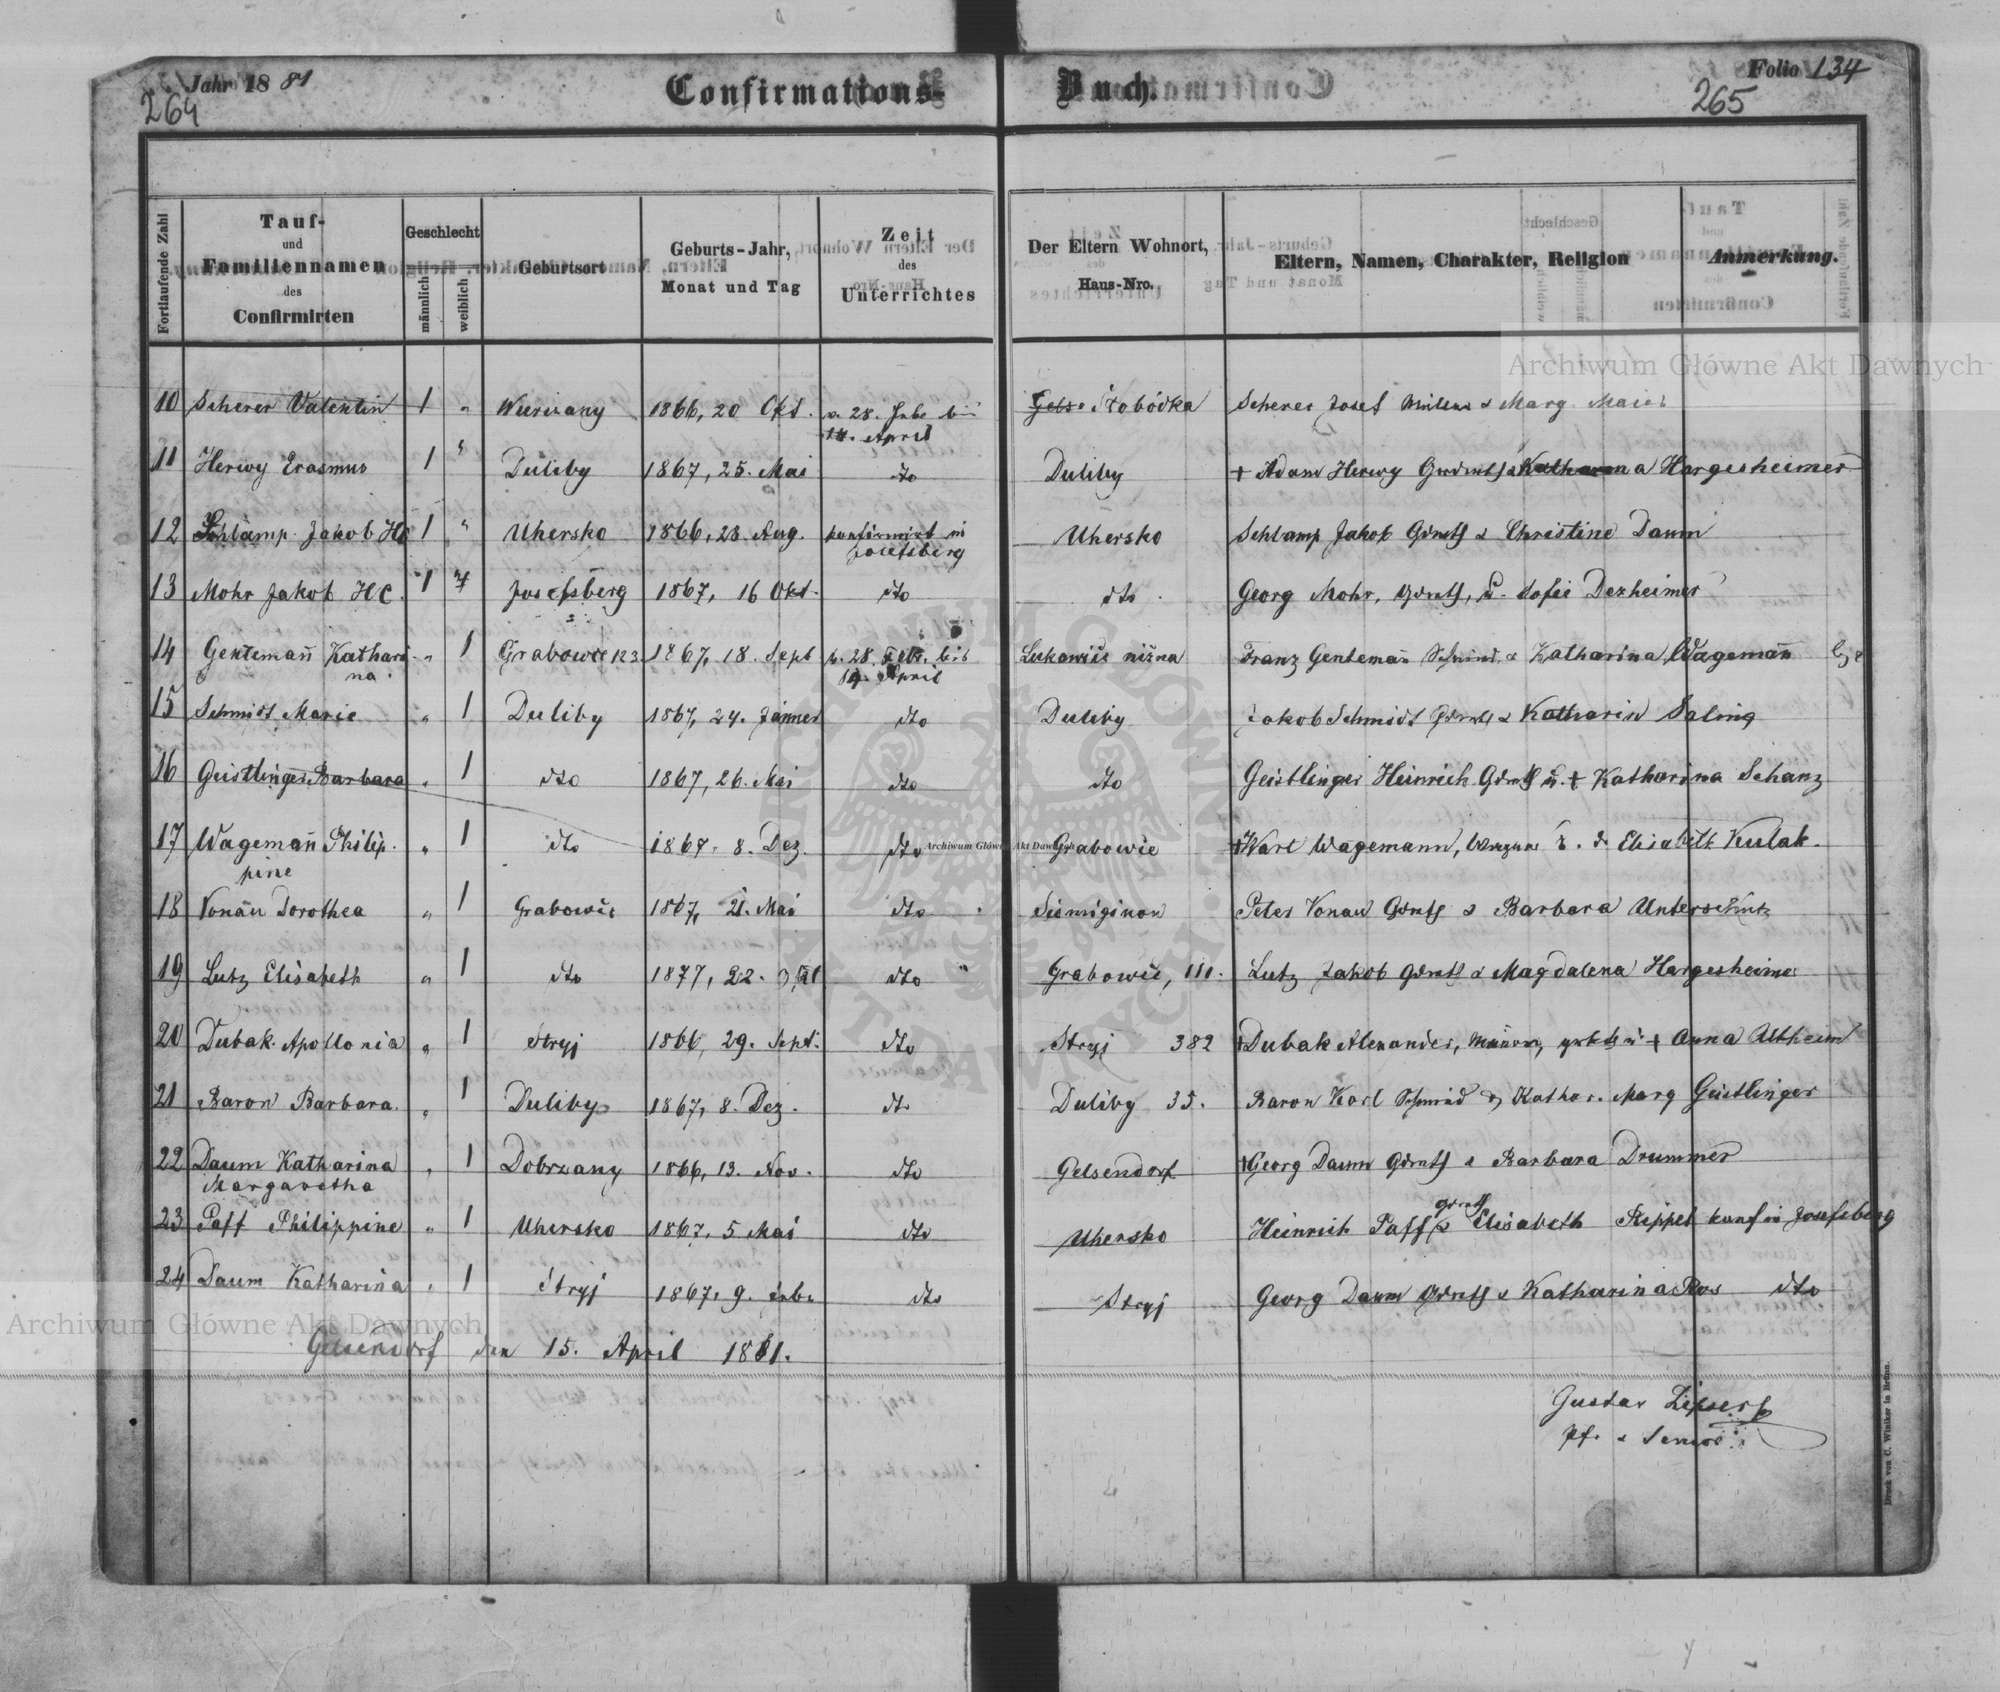 Jahr 1881
264
Confirmations-
Buch.
Folio 134
265
Fortlaufende Zahl
Tauf-
und
Familiennamen
des
Confirmirten
Geschlecht
männlich
weiblich
Geburtsort
Geburts-Jahr,
Monat und Tag
Zeit
des
Unterrichtes
Der Eltern Wohnort,
Haus-Nro.
Eltern, Namen, Charakter, Religion
Anmerkung.
10 Scherer Valentin 1 " 1866, 20 Okt. v. 28. bis Scherer Josef & Marg. Maier
14. April
11 Herwy Erasmus 1 " Duliby 1867, 25. Mai dto Duliby + Adam Herwy Katharina Hargesheimer
12 Schlamp Jakob HC 1 " Uhersko 1866, 28. Aug. konfirmirt in Uhersko Schlamp Jakob Grdwrth & Christine Daum
Josefsberg
13 Mohr Jakob HC. 1 Josefsberg 1867, 16 Okt. dto dto. Georg Mohr, Grdwrth, u. Sofie Dexheimer
14 Gentemañ Kathari- " 1 Grabowce 123 1867, 18. Sept v. 28. Feb. bis Lukawice nižna Franz Gentemañ & Katharina Wagemañ
na. 14. April
15 Schmidt Marie " 1 Duliby 1867, 24. Jänner dto Duliby Jakob Schmidt Grdwrth & Katharin Saling
16 Geistlinger Barbara " 1 dto 1867, 26. Mai dto dto Geistlinger Heinrich Grdwrth u. + Katharina Schanz
17 Wagemañ Philip- " 1 dto 1867. 8. Dez. dto Grabowce + Karl Wagemann, Elisabeth Kulak.
pine
18 Vonau Dorothea " 1 Grabowce 1867, 21. Mai dto Siemiginow Peter Vonau Grdwrth & Barbara Unterschütz
19 Lutz Elisabeth " 1 dto 1877, 22. dto Grabowce, 110. Lutz Jakob Grdwrth & Magdalena Hargesheimer
20 Dubak Apollonia " 1 Stryj 1866, 29. Sept. dto Stryj 382 + Dubak Alexander, + Anna Altheim
21 Baron Barbara. " 1 Duliby 1867, 8. Dez. dto Duliby 35. Baron Karl Schmid & Kathar. Marg Geistlinger
22 Daum Katharina " 1 Dobrzany 1866, 13. Nov. dto Gelsendorf + Georg Daum Grdwrth & Barbara Drummer
Margaretha
23 Paff Philippine " 1 Uhersko 1867. 5 Mai dto Uhersko Heinrich Paff Grdwrth & Elisabeth Rippel konf in Josefsberg
24 Daum Katharina " 1 Stryj 1867. 9. dto Stryj Georg Daum Grdwrth & Katharina Ros dto
Gelsendorf den 15. April 1881.
Gustav Lipsert
Pf. & Senior
Druck von C. Winiker in Brünn.
Archiwum Główne Akt Dawnych
Archiwum Główne Akt Dawnych
Archiwum Główne Akt Dawnych